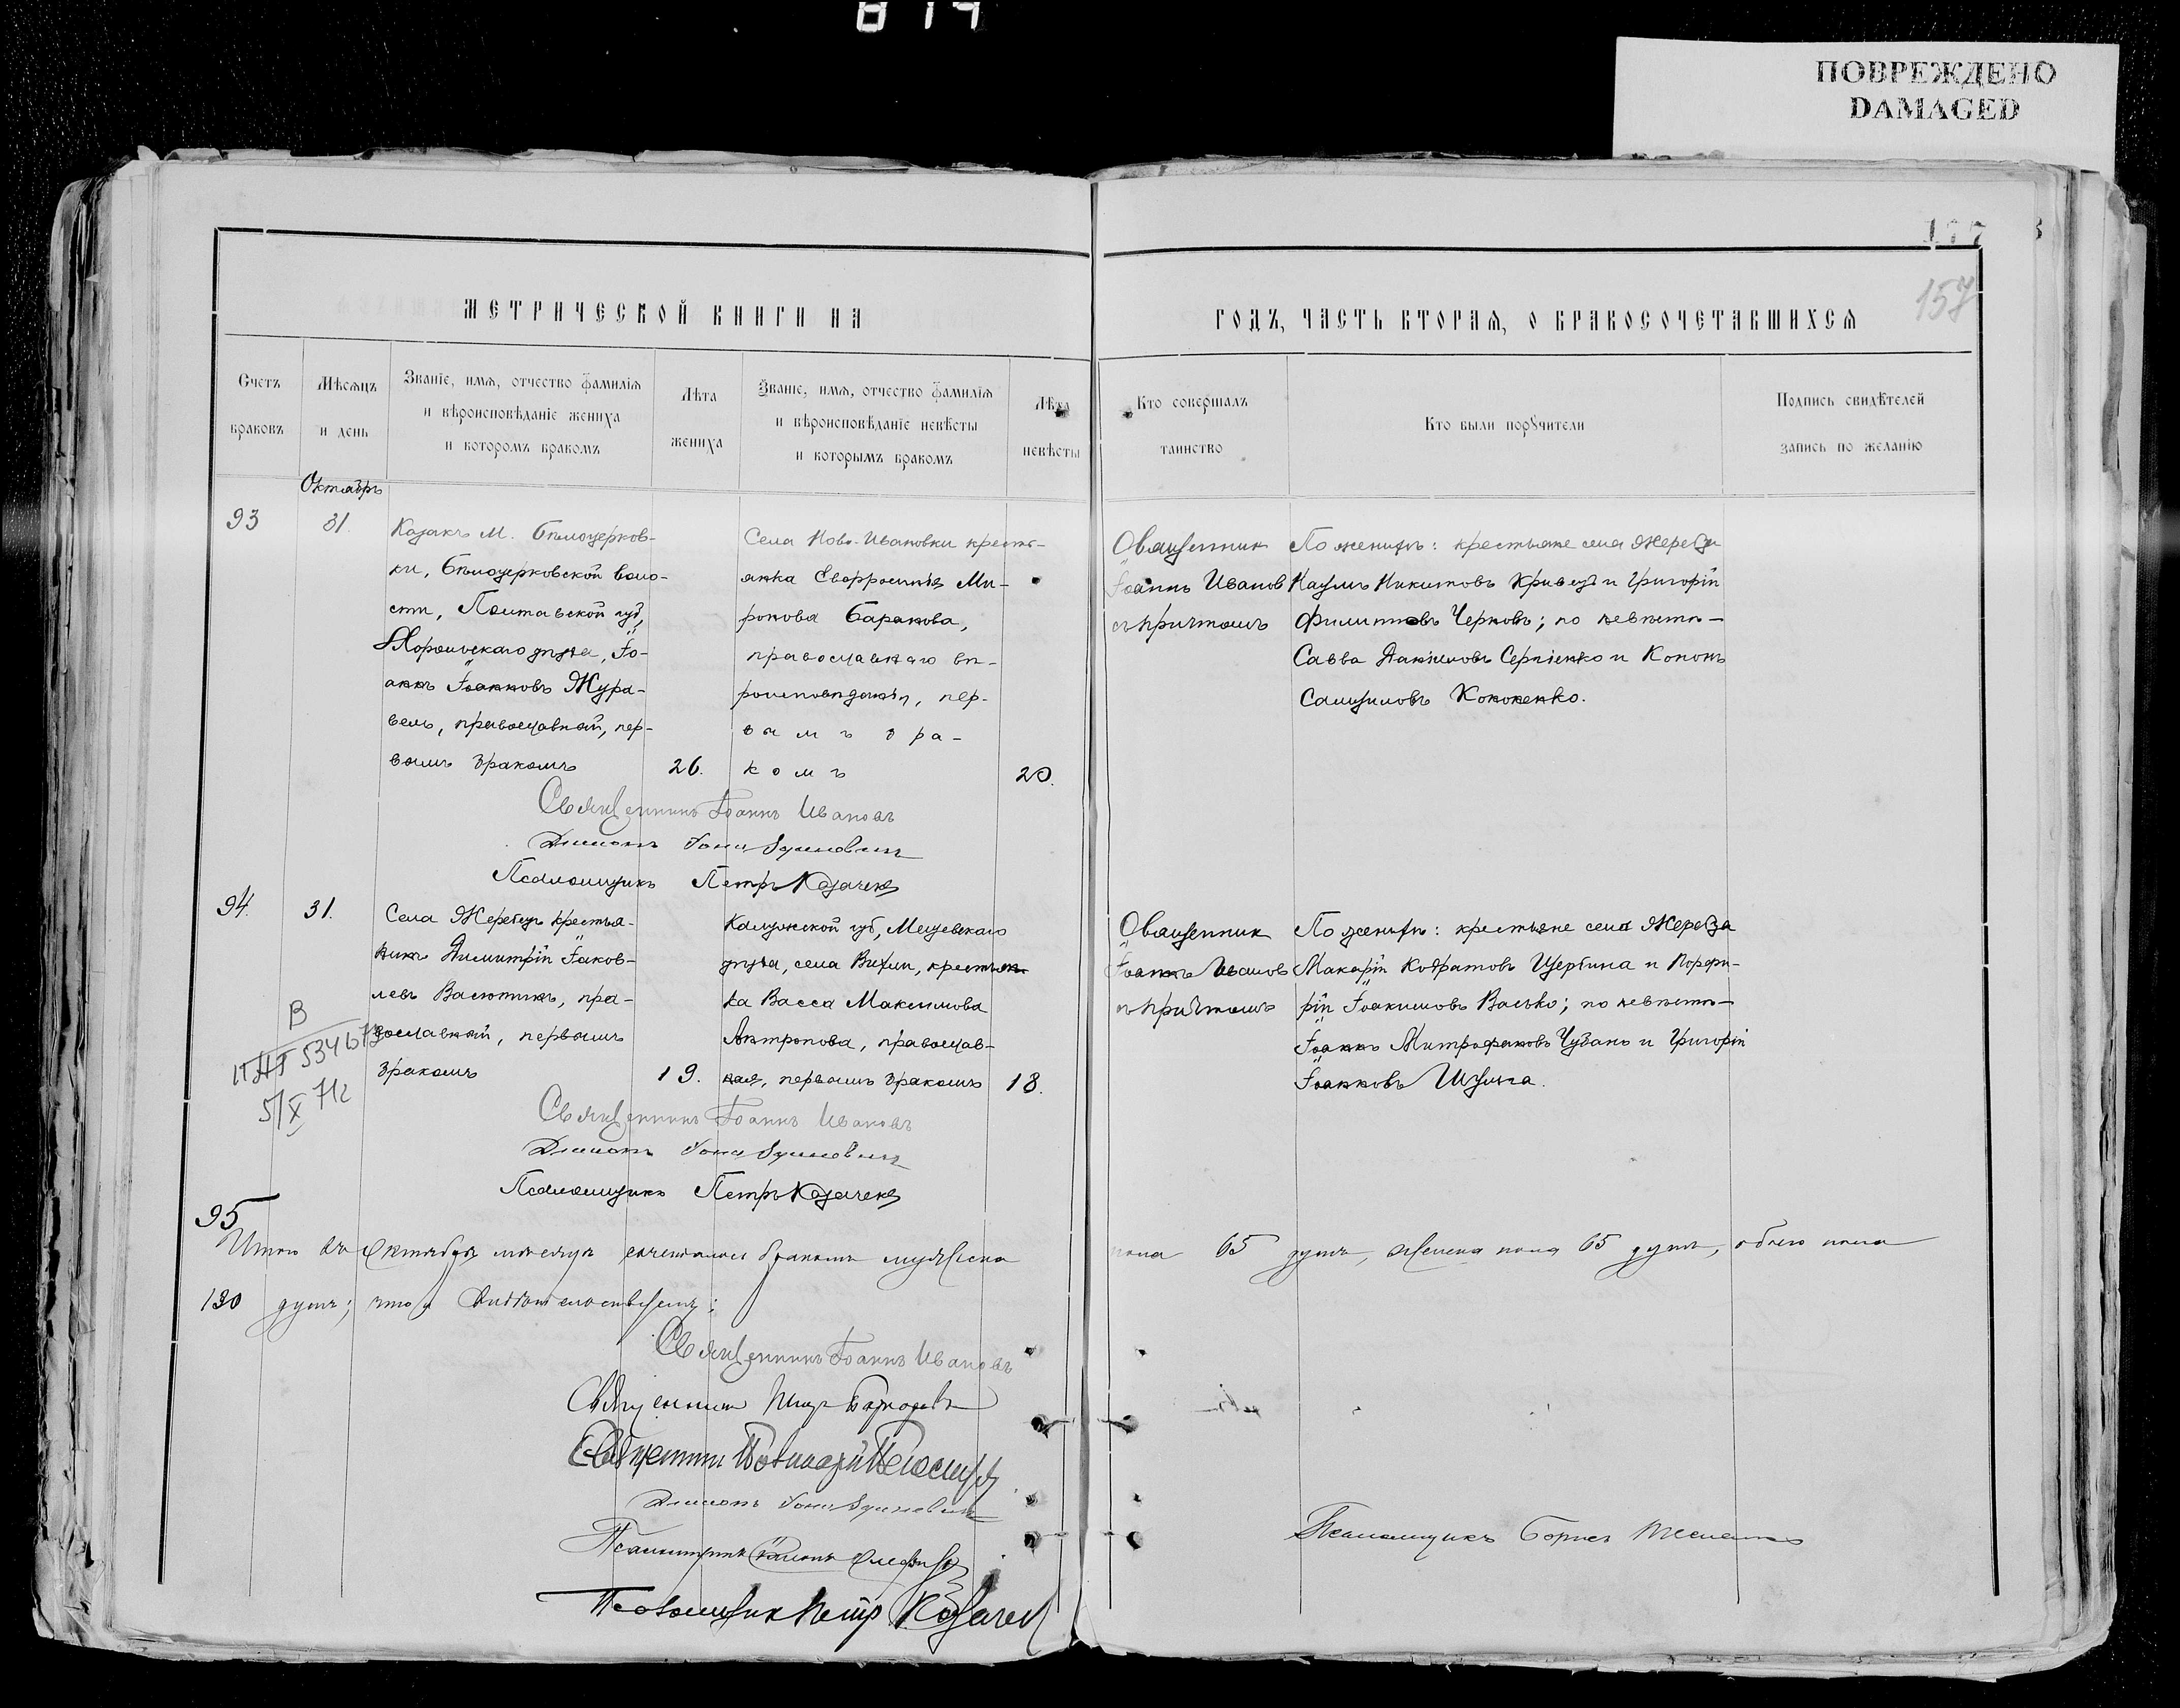 819
ПОВРЕЖДЕНО
DAMAGED
177
157
МЕТРИЧЕСКОЙ КНИГИ НА
ГОДЪ, ЧАСТЬ ВТОРАЯ, О БРАКОСОЧЕТАВШИХСЯ
Счетъ браковъ
Мѣсяцъ и день
Званіе, имя, отчество фамилія
и вѣроисповѣданіе жениха
и которомъ бракомъ
Лѣта жениха
Званіе, имя, отчество фамилія
и вѣроисповѣданіе невѣсты
и которымъ бракомъ
Лѣта невѣсты
Кто совершалъ
таинство
Кто были поручители
Подпись свидѣтелей
запись по желанію
Октябрь
93
31.
Казакъ м. Бѣлоцерков-
ки, Бѣлоцерковской воло-
сти, Полтавской губ,
Хорольскаго уѣзда, Іо-
аннъ Іоанновъ Жура-
вель, православный, пер-
вымъ бракомъ
26.
Села Ново-Ивановки кресть-
янка Евфросинія Ми-
ронова Баранова,
православнаго вѣ-
роисповѣданія, пер-
вымъ бра-
комъ
20.
Священникъ
Іоаннъ Ивановъ
съ причтомъ
По женихѣ: крестьяне села Жеребца
Наумъ Никитовъ Кривецъ и Григорій
Филипповъ Черковъ; по невѣстѣ —
Савва Даніиловъ Сергіенко и Кононъ
Самуиловъ Кононенко.
Священникъ Іоаннъ Ивановъ
Діаконъ
Псаломщикъ Петръ Казачекъ
94.
31.
Села Жеребецъ крестья-
нинъ Димитрій Іаков-
левъ Васютинъ, пра-
вославный, первымъ
бракомъ
19.
Калужской губ, Мещевскаго
уѣзда, села крестьян-
ка Васса Максимова
Антропова, православ-
ная, первымъ бракомъ
18.
Священникъ
Іоаннъ Ивановъ
съ причтомъ
По женихѣ: крестьяне села Жеребца
Макарій Кодратовъ Щербина и Порфи-
рій Іоакимовъ Васько; по невѣстѣ —
Іоаннъ Митрофановъ Чубань и Григорій
Іоанновъ Шульга.
В
5/X 71г
Священникъ Іоаннъ Ивановъ
Діаконъ
Псаломщикъ Петръ Казачекъ
95
Итого въ Октябрѣ мѣсяцѣ сочеталось бракомъ мужеска
пола 65 душъ, женска пола 65 душъ, обоего пола
130 душъ; что и свидѣтельствуемъ:
Священникъ Іоаннъ Ивановъ
Священникъ
Священникъ
Діаконъ
Псаломщикъ
Псаломщикъ Борисъ
Псаломщикъ Петръ Казачекъ